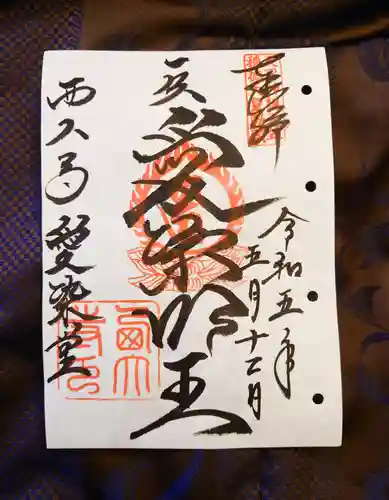 奉拝
令和五年
五月十二日
愛染明王
西大寺 愛染堂